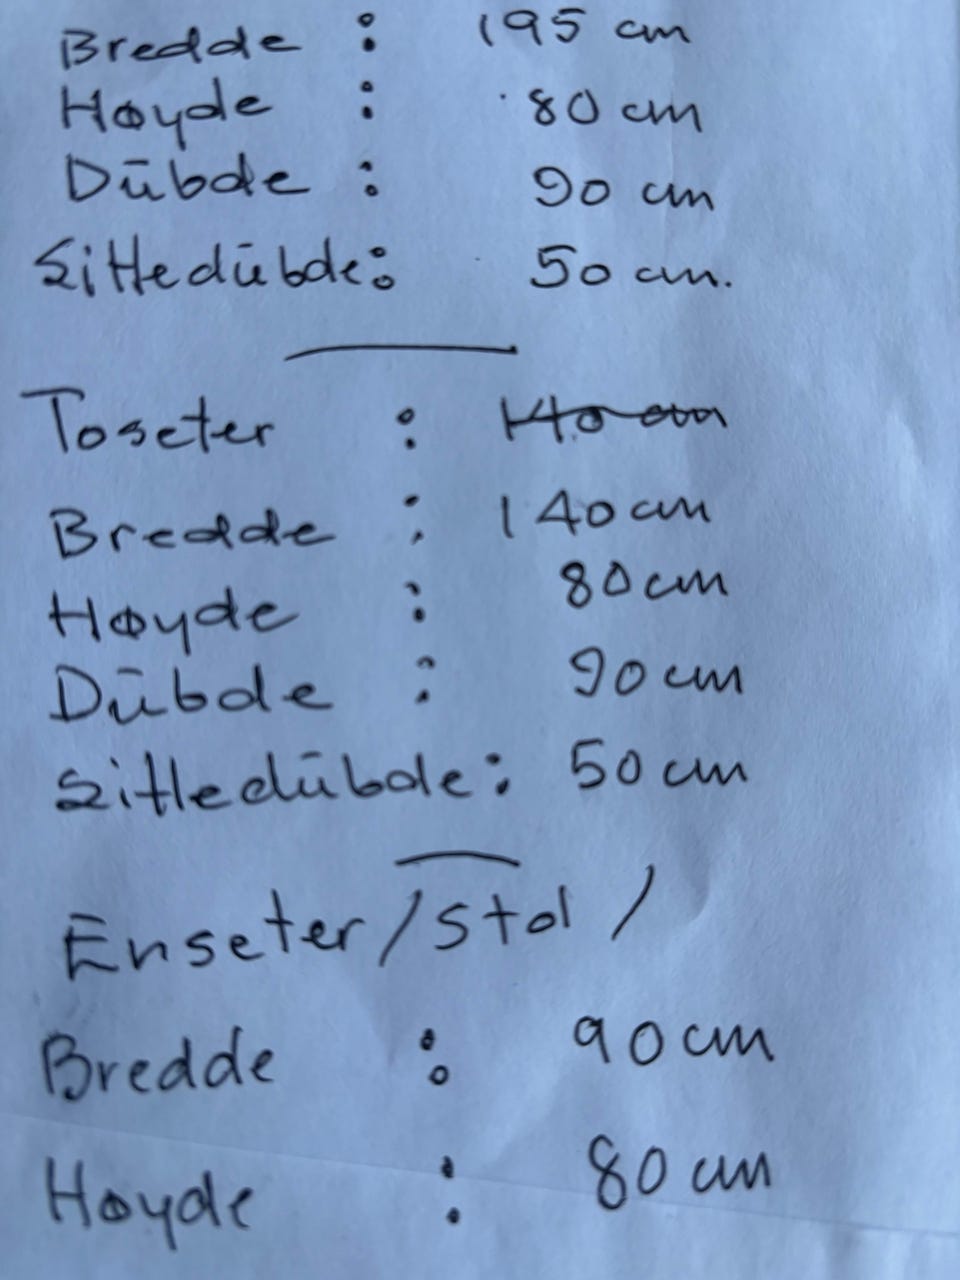 Bredde : 195 cm
Høyde : 80 cm
Dūbde : 90 cm
Sittedūbde: 50 cm.
Toseter : 140 cm
Bredde : 140 cm
Høyde : 80 cm
Dūbde : 90 cm
Sittedūbde: 50 cm
Enseter/stol/
Bredde : 90 cm
Høyde : 80 cm